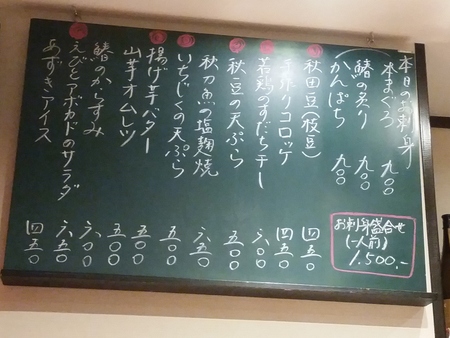 本日のお刺身
本まぐろ 九〇〇
鰆の炙り 九〇〇
かんぱち 九〇〇
お刺身盛合せ
(一人前)
1.500.-
秋田豆(枝豆) 四五〇
手作りコロッケ 四五〇
若鶏のすだちチー 六〇〇
秋豆の天ぷら 五〇〇
秋刀魚の塩麹焼 六五〇
いちじくの天ぷら 五〇〇
揚げ芋バター 五〇〇
山芋オムレツ 五〇〇
鰆のからすみ 六〇〇
えびとアボカドのサラダ 六五〇
あずきアイス 四五〇